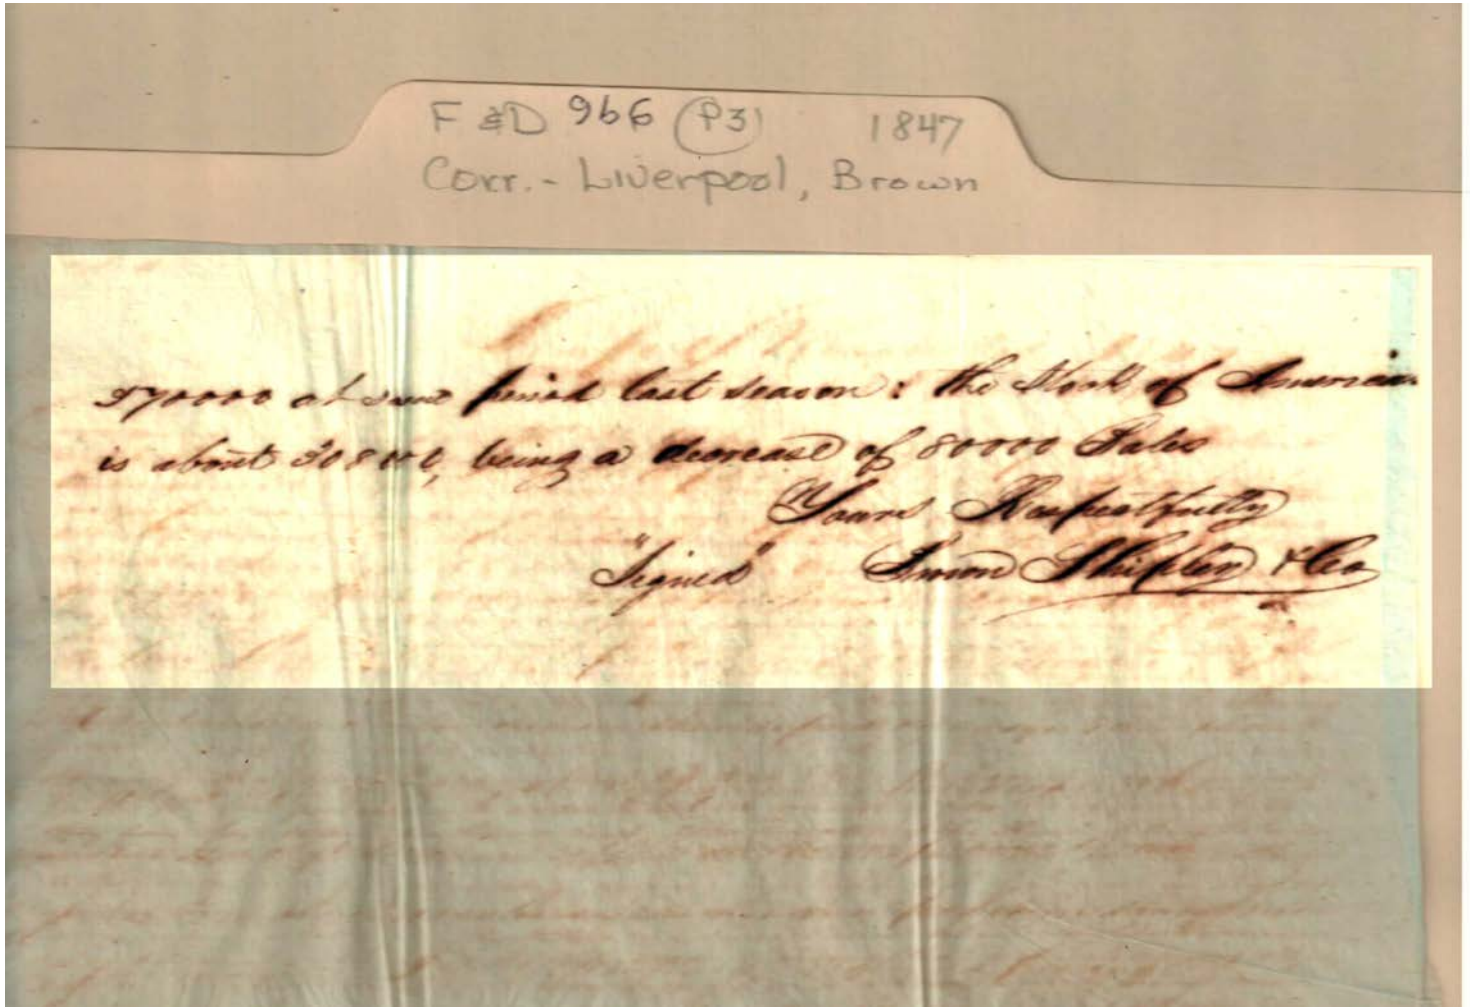 F & D 966 (P3) 1847
Corr. - Liverpool, Brown
570000 at same period last season: the Stock of American
is about 308000, being a decrease of 80000 Bales
Yours Respectfully
"Signed" Brown Shipley & Co